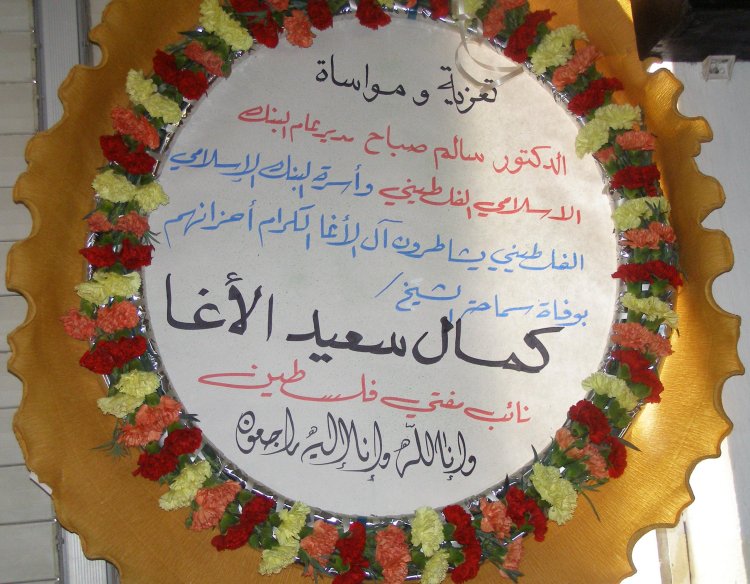 تعزية و مواساة
الدكتور سالم صباح مدير عام البنك
الاسلامي الفلسطيني وأسرة البنك الإسلامي
الفلسطيني يشاطرون آل الأغا الكرام أحزانهم
بوفاة سماحة الشيخ /
كمال سعيد الأغا
نائب مفتي فلسطين
وإنا لله وإنا إليه راجعون